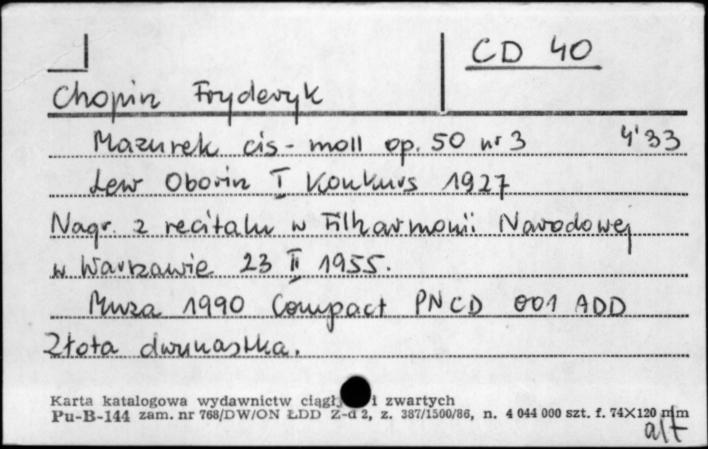 CD 40
Chopin Fryderyk
Mazurek cis-moll op. 50 nr 3 4'33
Lew Oborin I Konkurs 1927
Nagr. z recitalu w Filharmonii Narodowej
w Warszawie 23 II 1955.
Muza 1990 Compact PNCD 001 ADD
Złota dwunastka.
Karta katalogowa wydawnictw i zwartych
Pu-B-144 zam. nr 768/DW/ON ŁDD Z-d 2, z. 387/1500/86, n. 4 044 000 szt. f. 74X120 mm
alt